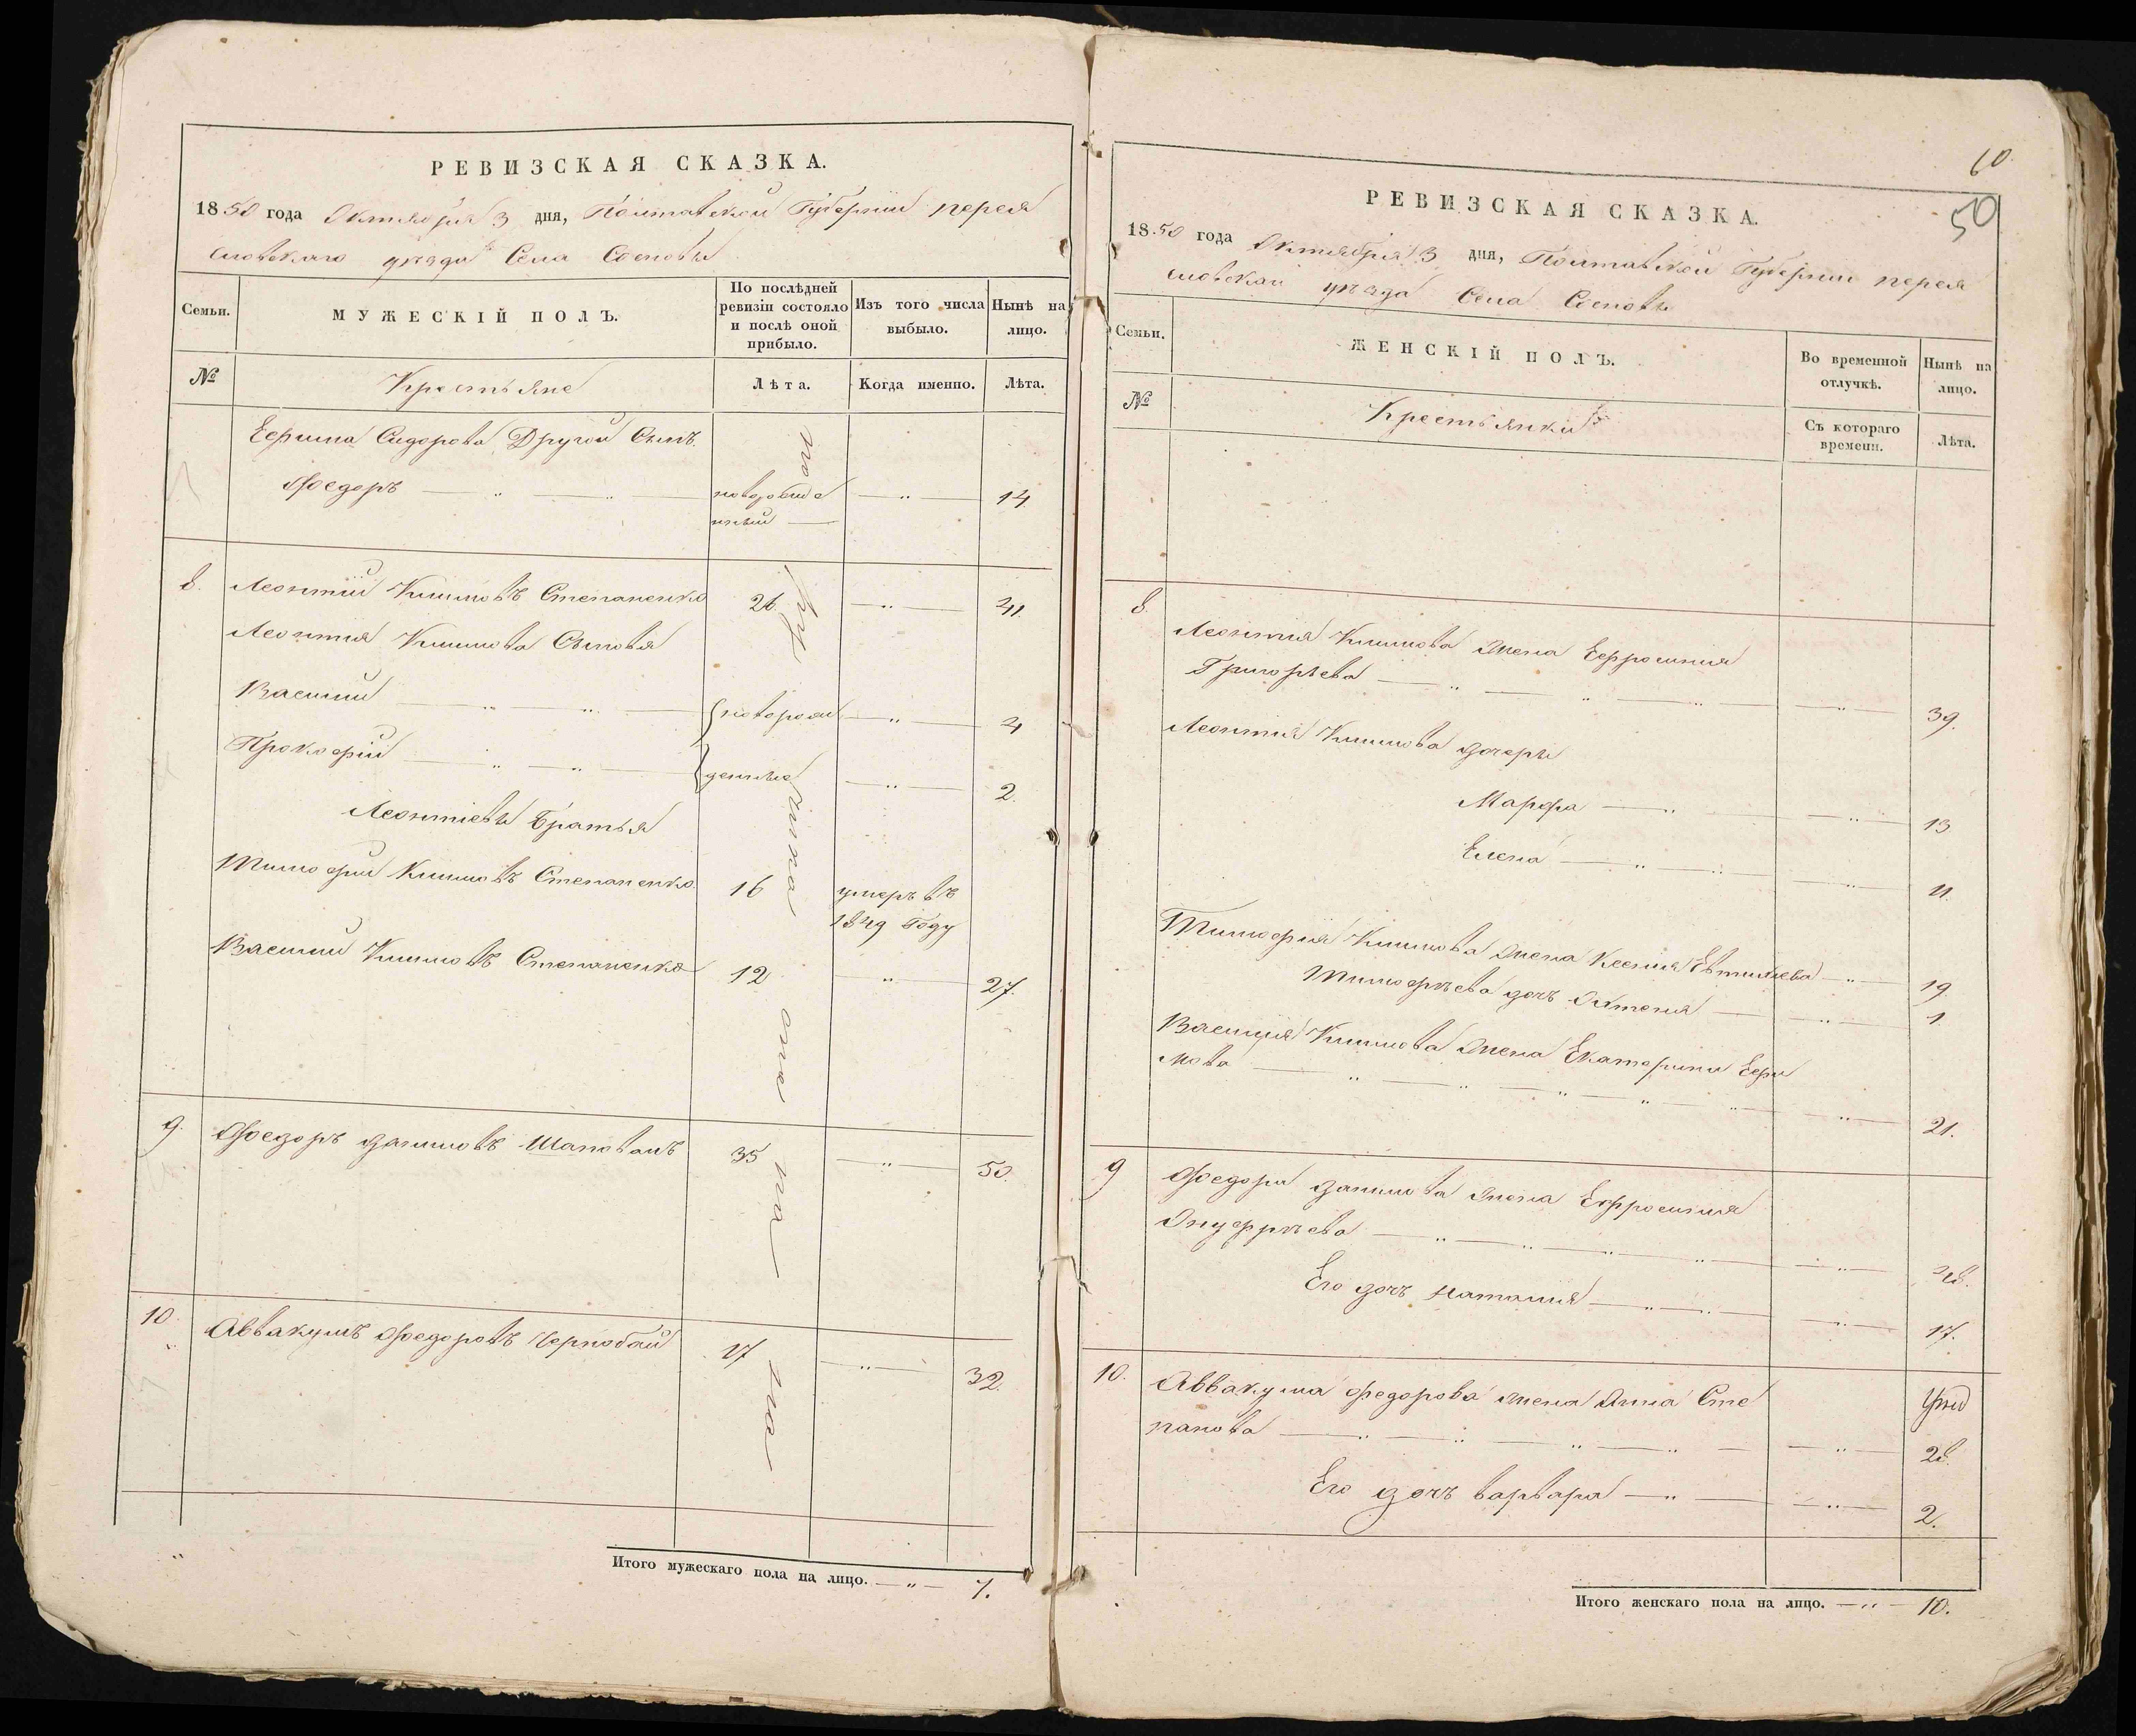 РЕВИЗСКАЯ СКАЗКА.
1850 года Октября 3 дня, Полтавской Губернии перея
словскаго уезда Села Сосновы
Семьи. МУЖЕСКІЙ ПОЛЪ. По послѣдней ревизіи состояло и послѣ оной прибыло. Изъ того числа выбыло. Нынѣ на лицо.
№ Крестьяне Лѣта. Когда именно. Лѣта.
Ефима Сидорова Другой Сынъ
Федоръ — „ — „ — новорожде — „ — 14
нный —
8. Леонтий Климовъ Степаненко 26 — „ — 41.
Леонтия Климова Сыновья
Василий — „ — „ — новорож — „ — 4
Прокофій — „ — „ — денные — „ — 2.
Леонтіевы Братья
Тимофий Климовъ Степаненко 16 умеръ въ
1849 Году
Василий Климовъ Степаненко 12 „ 27.
9. Федоръ Даниловъ Шаповалъ 35 — „ — 50.
10. Аввакумъ Федоровъ Чернобай 17 — „ — 32.
Итого мужескаго пола на лицо. — „ — 7.
60
50
РЕВИЗСКАЯ СКАЗКА.
1850 года Октября 3 дня, Полтавской Губернии перея
словскаго уъзда Села Сосновы
Семьи. ЖЕНСКІЙ ПОЛЪ. Во временной отлучкѣ. Нынѣ на лицо.
№ Крестьянки Съ котораго времени. Лѣта.
8. Леонтия Климова жена Ефросиния
Григорьева — „ — „ — „ — „ — 39.
Леонтия Климова дочери
Марфа — „ — „ — 13
Елена — „ — „ — „ — 11.
Тимофия Климова жена Ксения Евтихиева — „ — 19.
Тимофъева дочъ — „ — 1
Василия Климова жена Екатерина Ефи
мова — „ — „ — „ — „ — „ — „ — 21.
9 Федора Данилова жена Ефросиния
Онуфръева — „ — „ — „ — „ — „ — 48.
Его дочъ Наталия — „ — „ — „ — 17.
10. Аввакума Федорова жена Анна Сте
панова — „ — „ — „ — „ — „ — 28.
Его дочъ варвара — „ — „ — 2.
Итого женскаго пола на лицо. — „ — 10.